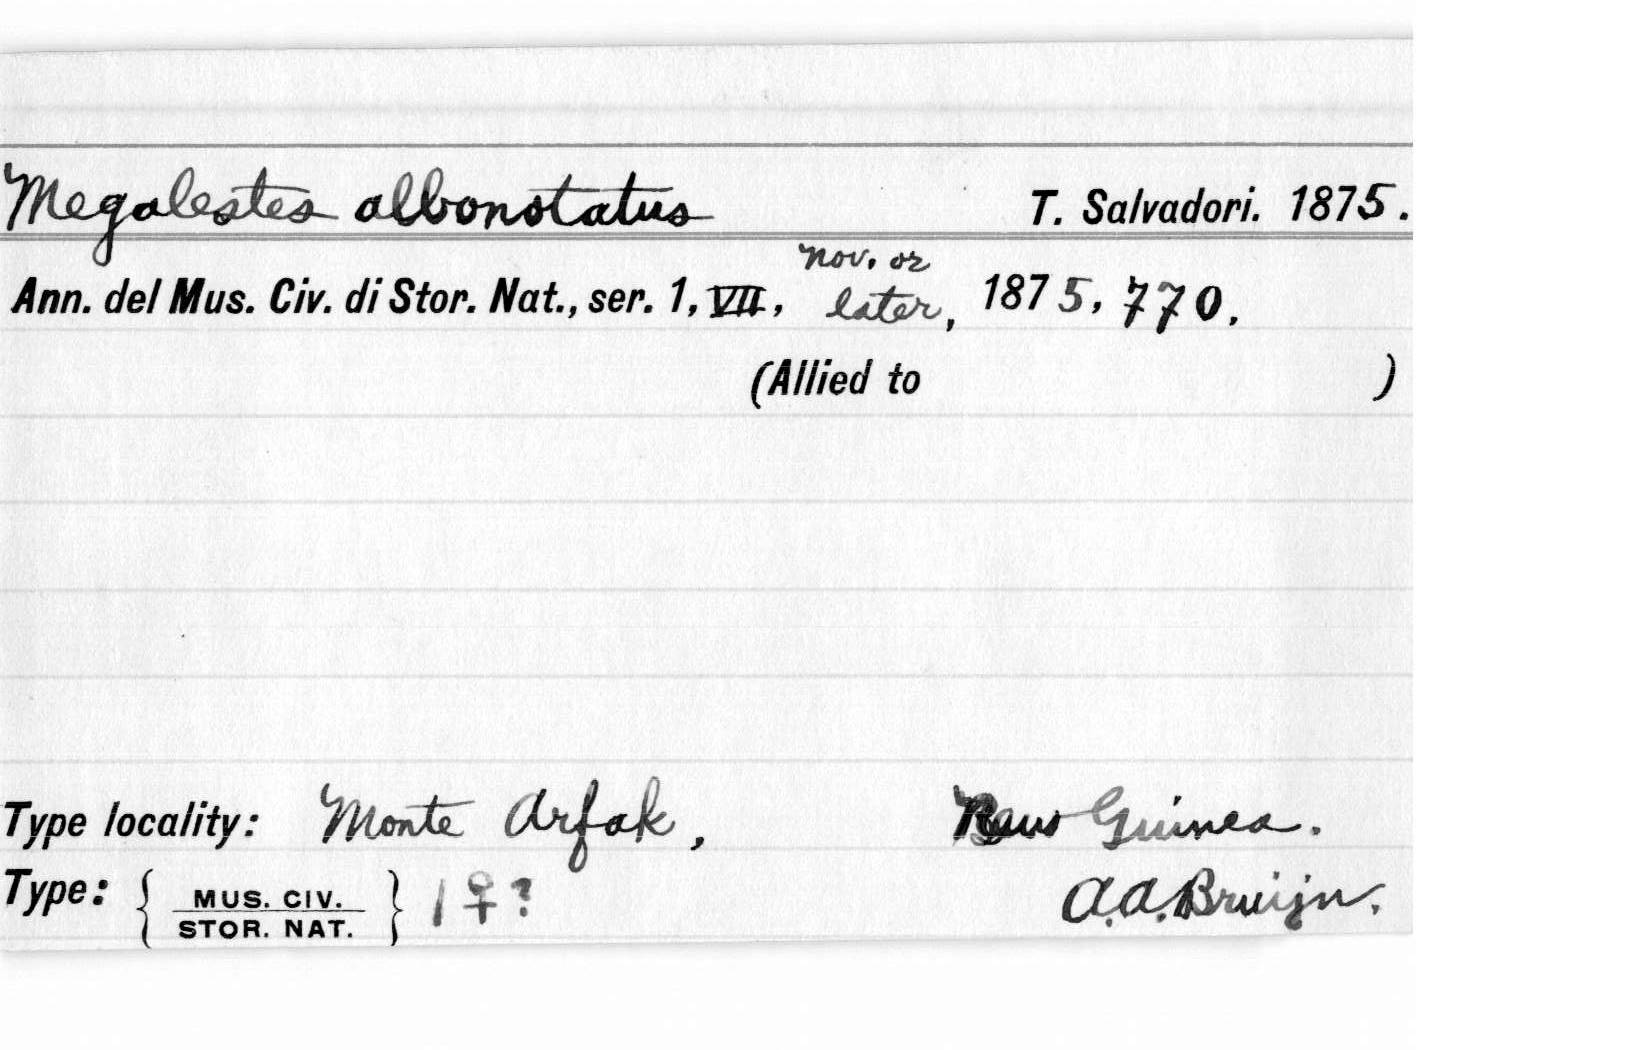 Megalestes albonotatus T. Salvadori. 1875.
Nov. or
Ann. del Mus. Civ. di Stor. Nat., ser. 1, VII, later, 1875, 770.
(Allied to )
Type locality: Monte Arfak, New Guinea.
Type: { MUS. CIV. } 1 ♀ ? A.A. Bruijn.
STOR. NAT.